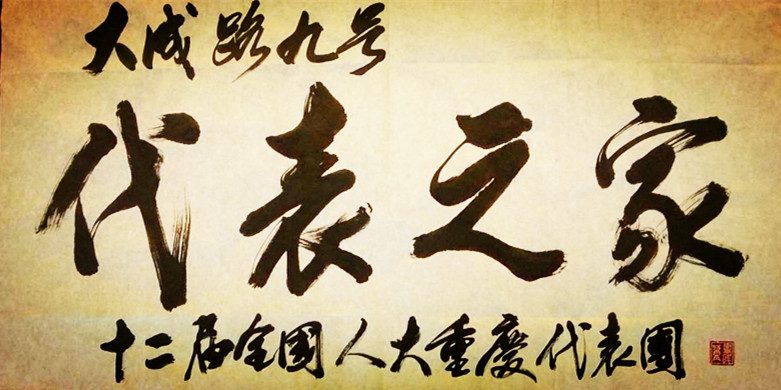 大成路九号
代表之家
十二届全國人大重慶代表團